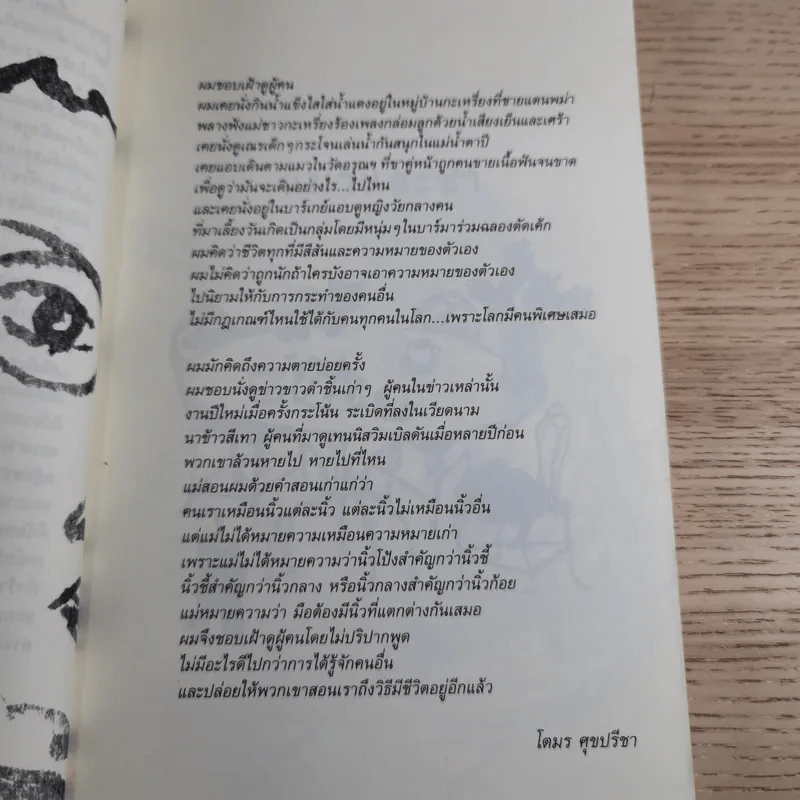 ผมชอบเฝ้าดูผู้คน
ผมเคยนั่งกินน้ำแข็งไสใส่น้ำแดงอยู่ในหมู่บ้านกะเหรี่ยงที่ชายแดนพม่า
พลางฟังแม่ชาวกะเหรี่ยงร้องเพลงกล่อมลูกด้วยน้ำเสียงเย็นและเศร้า
เคยนั่งดูเณรเด็กๆกระโจนเล่นน้ำกันสนุกในแม่น้ำตาปี
เคยแอบเดินตามแมวในวัดอรุณฯ ที่ขาคู่หน้าถูกคนขายเนื้อฟันจนขาด
เพื่อดูว่ามันจะเดินอย่างไร...ไปไหน
และเคยนั่งอยู่ในบาร์เกย์แอบดูหญิงวัยกลางคน
ที่มาเลี้ยงวันเกิดเป็นกลุ่มโดยมีหนุ่มๆในบาร์มาร่วมฉลองตัดเค้ก
ผมคิดว่าชีวิตทุกที่มีสีสันและความหมายของตัวเอง
ผมไม่คิดว่าถูกนักถ้าใครบังอาจเอาความหมายของตัวเอง
ไปนิยามให้กับการกระทำของคนอื่น
ไม่มีกฎเกณฑ์ไหนใช้ได้กับคนทุกคนในโลก...เพราะโลกมีคนพิเศษเสมอ
ผมมักคิดถึงความตายบ่อยครั้ง
ผมชอบนั่งดูข่าวขาวดำชิ้นเก่าๆ ผู้คนในข่าวเหล่านั้น
งานปีใหม่เมื่อครั้งกระโน้น ระเบิดที่ลงในเวียดนาม
นาข้าวสีเทา ผู้คนที่มาดูเทนนิสวิมเบิลดันเมื่อหลายปีก่อน
พวกเขาล้วนหายไป หายไปที่ไหน
แม่สอนผมด้วยคำสอนเก่าแก่ว่า
คนเราเหมือนนิ้วแต่ละนิ้ว แต่ละนิ้วไม่เหมือนนิ้วอื่น
แต่แม่ไม่ได้หมายความเหมือนความหมายเก่า
เพราะแม่ไม่ได้หมายความว่านิ้วโป้งสำคัญกว่านิ้วชี้
นิ้วชี้สำคัญกว่านิ้วกลาง หรือนิ้วกลางสำคัญกว่านิ้วก้อย
แม่หมายความว่า มือต้องมีนิ้วที่แตกต่างกันเสมอ
ผมจึงชอบเฝ้าดูผู้คนโดยไม่ปริปากพูด
ไม่มีอะไรดีไปกว่าการได้รู้จักคนอื่น
และปล่อยให้พวกเขาสอนเราถึงวิธีมีชีวิตอยู่อีกแล้ว
โตมร ศุขปรีชา